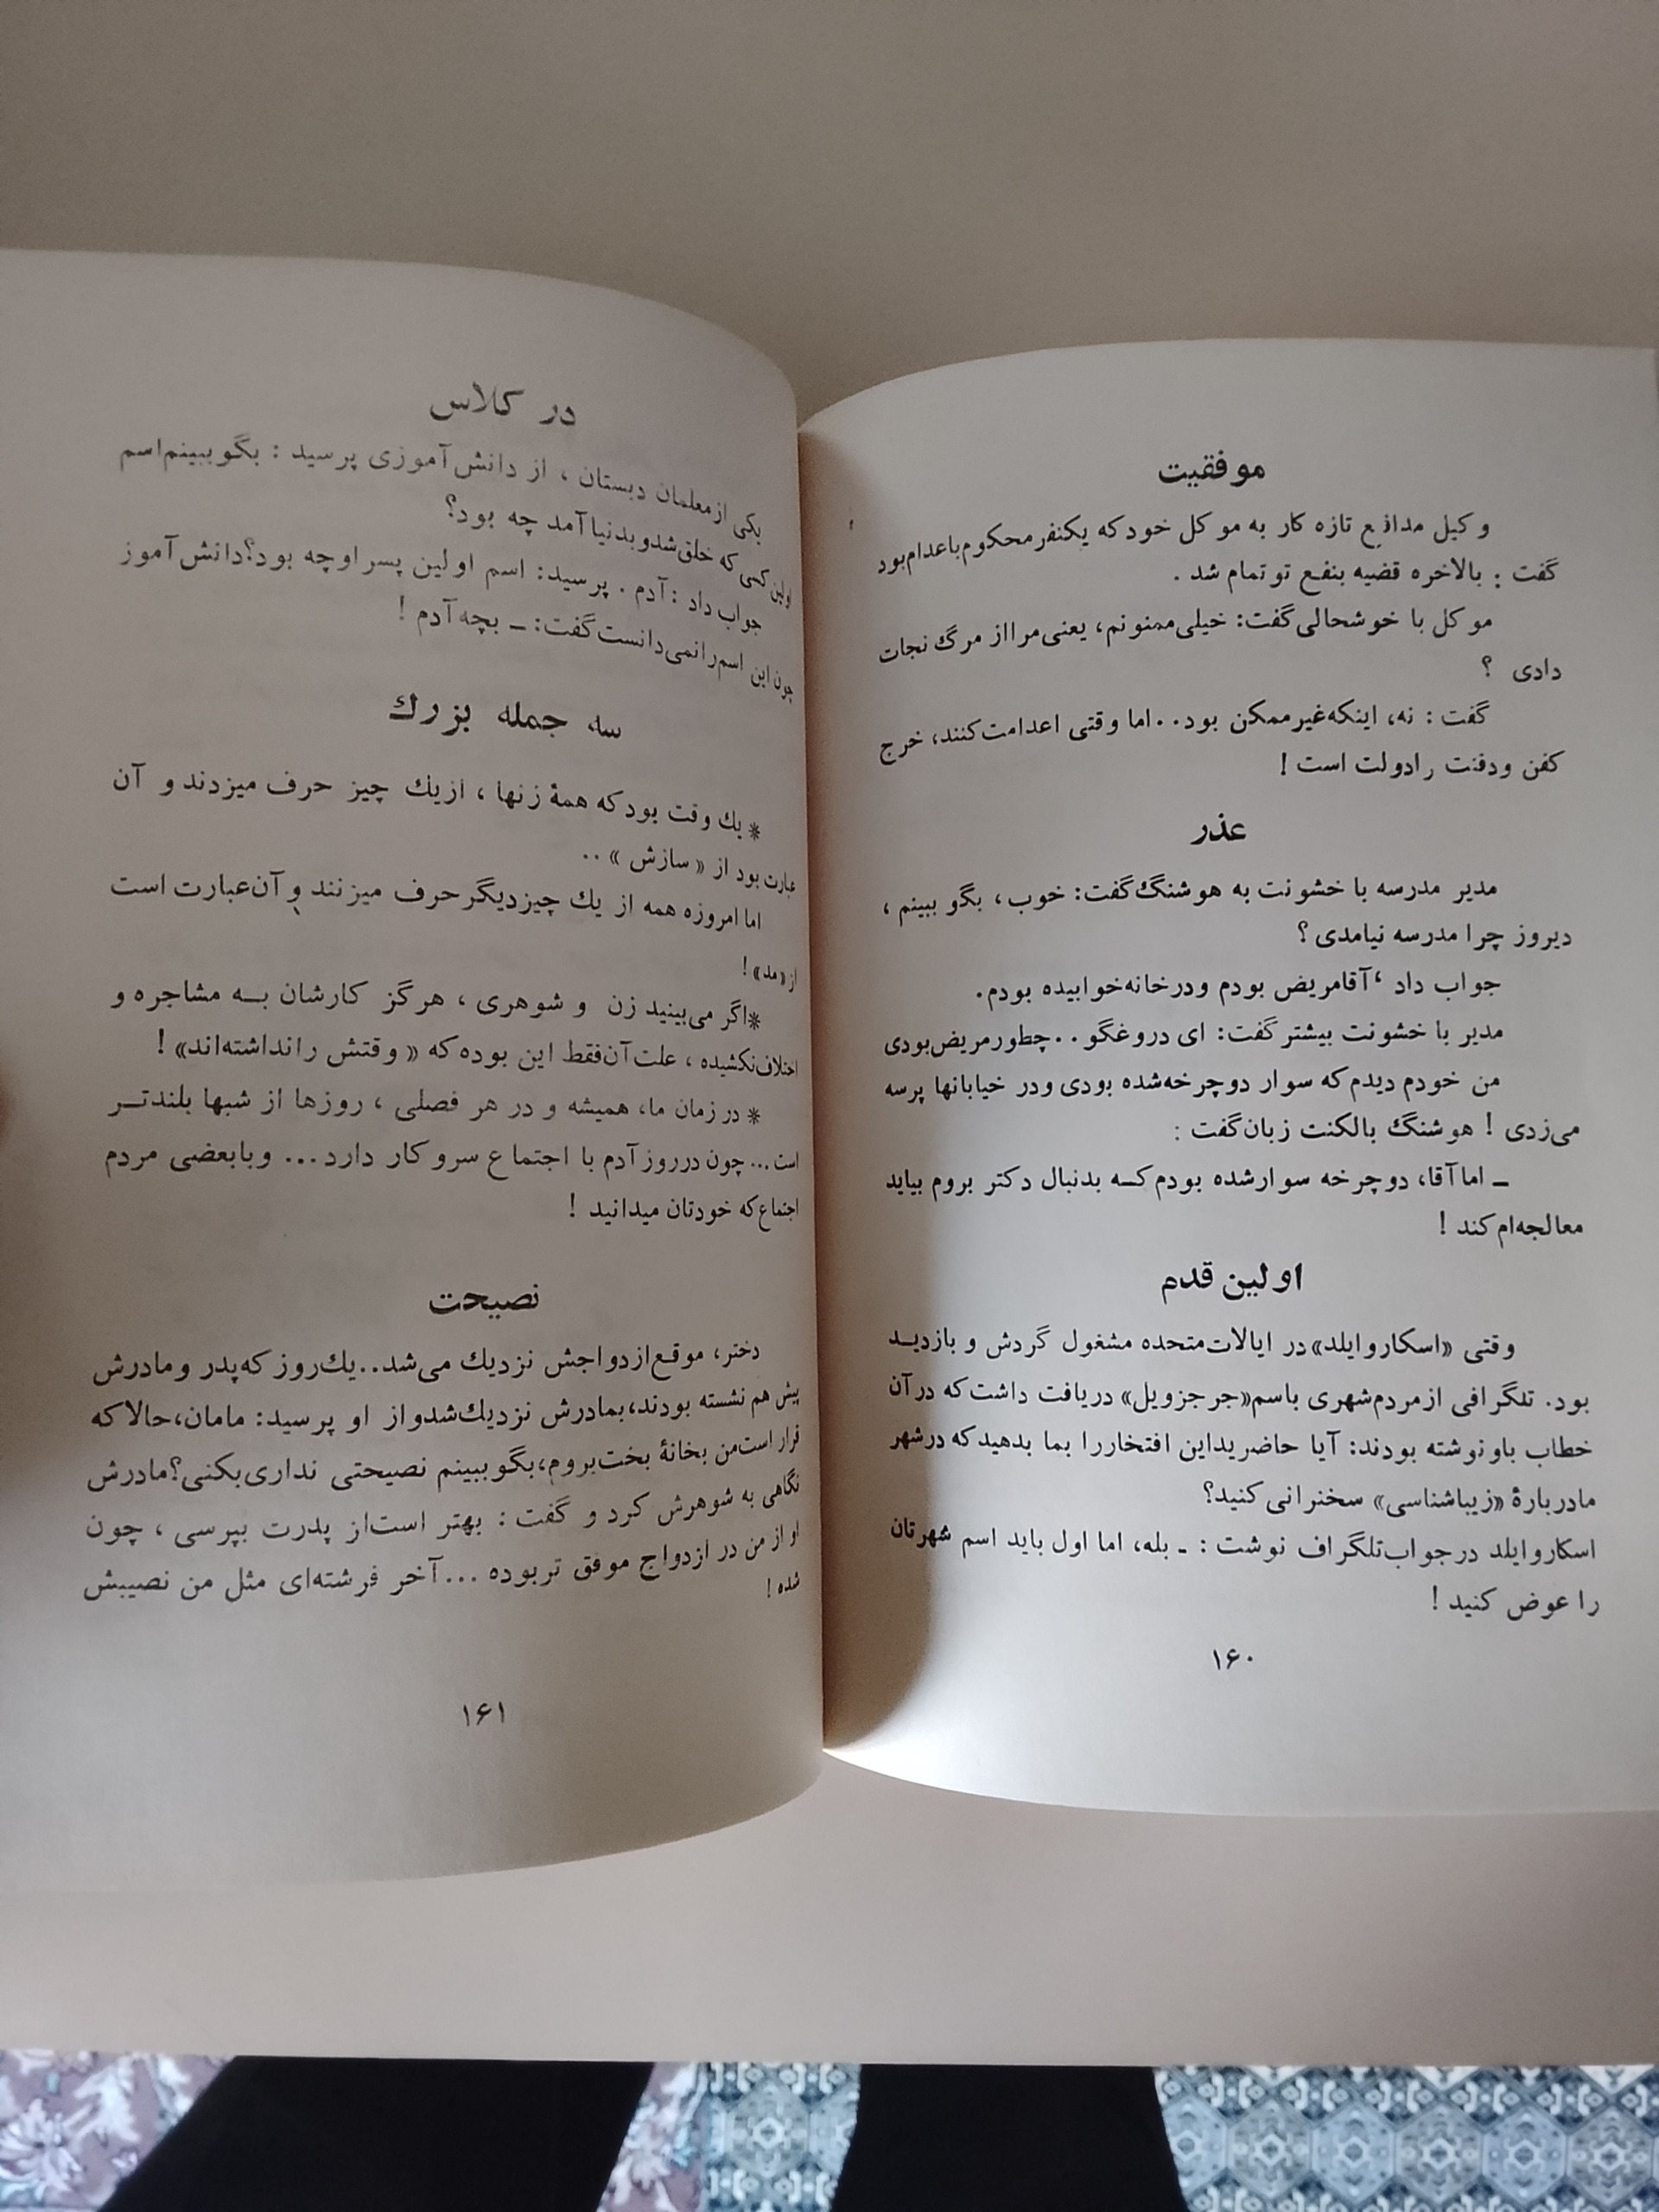 موفقیت
وکیل مدافع تازه کار به موکل خود که یکنفر محکوم باعدام بود
گفت : بالاخره قضیه بنفع تو تمام شد .
موکل با خوشحالی گفت: خیلی ممنونم، یعنی مرا از مرگ نجات
دادی ؟
گفت : نه، اینکه غیر ممکن بود.. اما وقتی اعدامت کنند، خرج
کفن و دفنت را دولت است !
عذر
مدیر مدرسه با خشونت به هوشنگ گفت: خوب، بگو ببینم ،
دیروز چرا مدرسه نیامدی ؟
جواب داد ، آقا مریض بودم و در خانه خوابیده بودم.
مدیر با خشونت بیشتر گفت: ای دروغگو .. چطور مریض بودی
من خودم دیدم که سوار دوچرخه شده بودی و در خیابانها پرسه
می‌زدی ! هوشنگ بالکنت زبان گفت :
ـ اما آقا، دوچرخه سوار شده بودم کـه بدنبال دکتر بروم بیاید
معالجه‌ام کند !
اولین قدم
وقتی «اسکار وایلد» در ایالات متحده مشغول گردش و بازدیـد
بود. تلگرافی از مردم شهری باسم «جرجزویل» دریافت داشت که در آن
خطاب باو نوشته بودند: آیا حاضرید این افتخار را بما بدهید که در شهر
ما دربارهٔ «زیباشناسی» سخنرانی کنید؟
اسکار وایلد در جواب تلگراف نوشت : ـ بله، اما اول باید اسم شهرتان
را عوض کنید !
۱۶۰
در کلاس
یکی از معلمان دبستان ، از دانش آموزی پرسید : بگو ببینم اسم
اولین کسی که خلق شد و بدنیا آمد چه بود؟
جواب داد : آدم . پرسید: اسم اولین پسر او چه بود؟ دانش آموز
چون این اسم را نمی‌دانست گفت: ـ بچه آدم !
سه جمله بزرك
* یك وقت بود که همهٔ زنها ، از یك چیز حرف میزدند و آن
عبارت بود از « سازش » ..
اما امروزه همه از یك چیز دیگر حرف میزنند و آن عبارت است
از «مد» !
* اگر می‌بینید زن و شوهری ، هرگز کارشان بـه مشاجره و
اختلاف نکشیده ، علت آن فقط این بوده که « وقتش را نداشته‌اند» !
* در زمان ما، همیشه و در هر فصلی ، روزها از شبها بلندتـر
است... چون در روز آدم با اجتماع سرو کار دارد... و با بعضی مردم
اجتماع که خودتان میدانید !
نصیحت
دختر، موقع ازدواجش نزدیك می‌شد.. یك روز که پدر و مادرش
پیش هم نشسته بودند، بمادرش نزدیك شد و از او پرسید: مامان، حالا که
قرار است من بخانهٔ بخت بروم، بگو ببینم نصیحتی نداری بکنی؟ مادرش
نگاهی به شوهرش کرد و گفت : بهتر است از پدرت بپرسی ، چون
او از من در ازدواج موفق تر بوده ... آخر فرشته‌ای مثل من نصیبش
شده !
۱۶۱